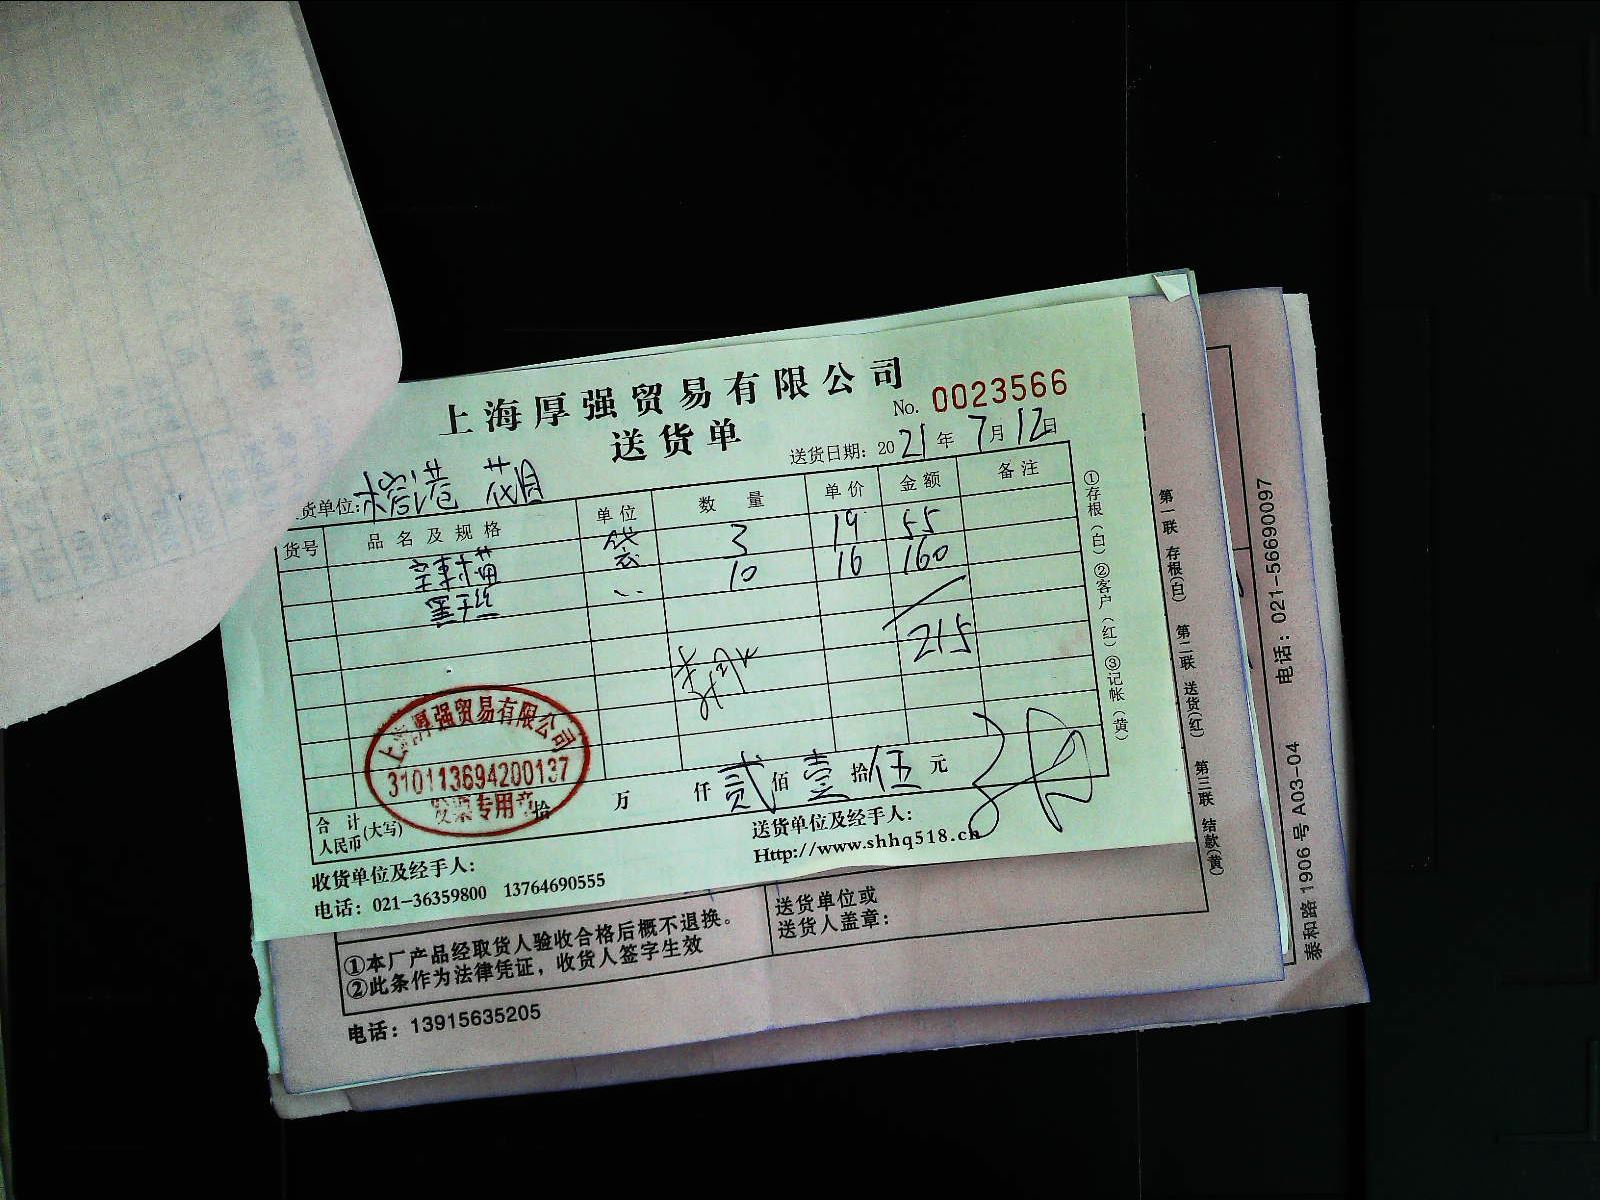 上海厚强贸易有限公司
No. 0023566
送货单
送货日期：2021年7月12日
货单位：
货号 品名及规格 单位 数量 单价 金额 备注
袋 3 19 55
10 16 160
215
合计人民币(大写) 拾 万 仟 贰 佰 壹 拾 伍 元
上海厚强贸易有限公司
310113694200137
发票专用章
收货单位及经手人：
送货单位及经手人：
电话：021-36359800 13764690555
Http://www.shhq518.cn
①存根(白)②客户(红)③记帐(黄)
第一联 存根(白) 第二联 送货(红) 第三联 结款(黄)
泰和路1906号A03-04 电话：021-56690097
①本厂产品经取货人验收合格后概不退换。
②此条作为法律凭证，收货人签字生效
送货单位或
送货人盖章：
电话：13915635205